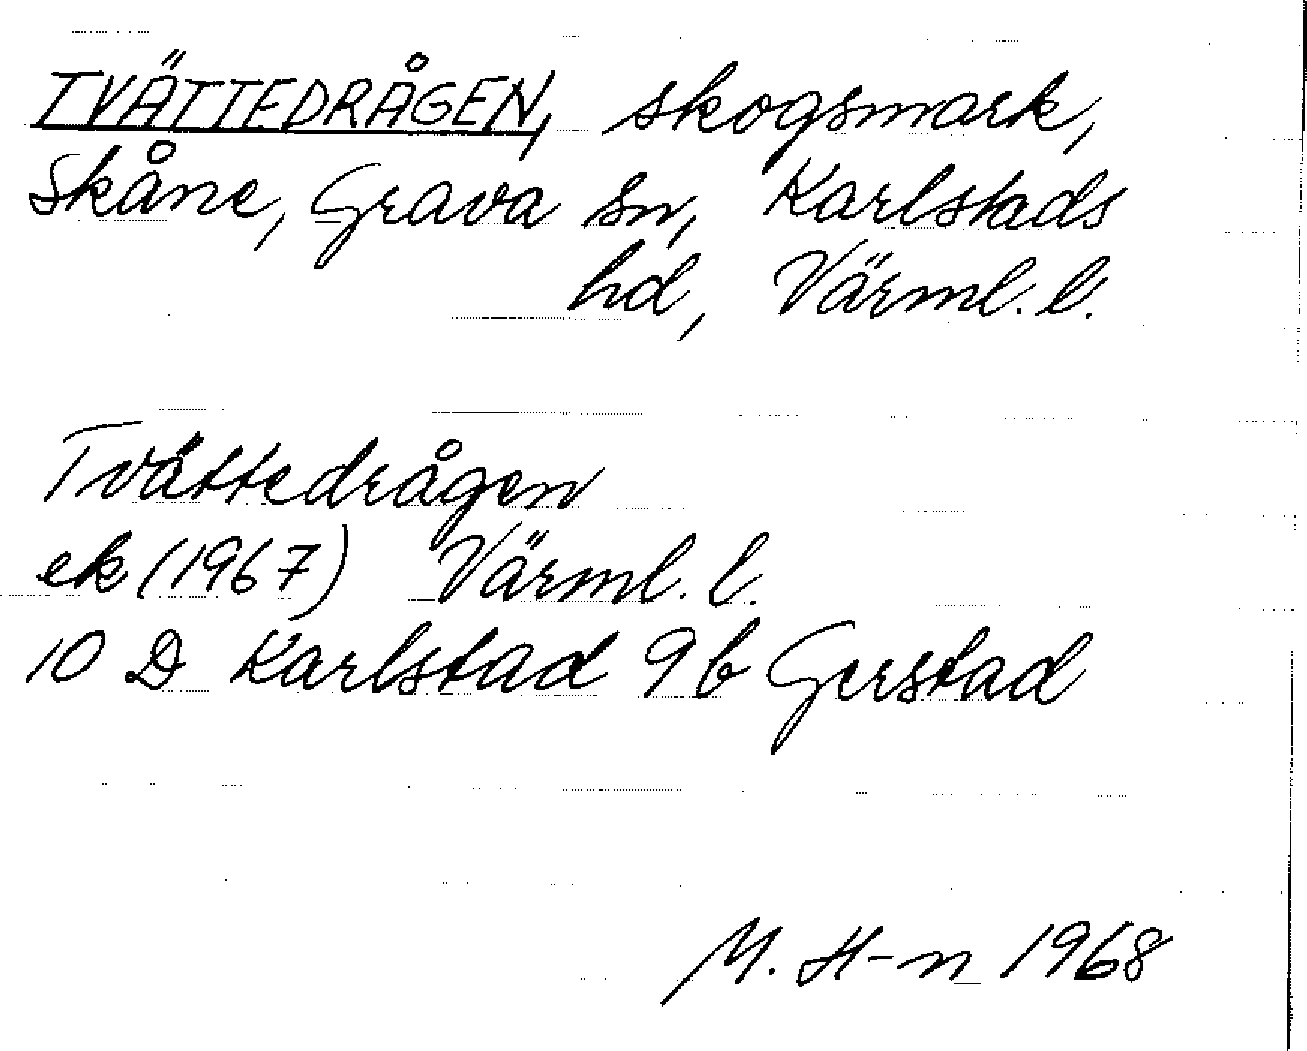 TVÄTTEDRÅGEN, skogsmark,
Skåne, Grava sn, Karlstads
hd, Värml. l.
Tvättedrågen
ek (1967) Värml. l.
10 D Karlstad 9 b Gerstad
M. H-n 1968